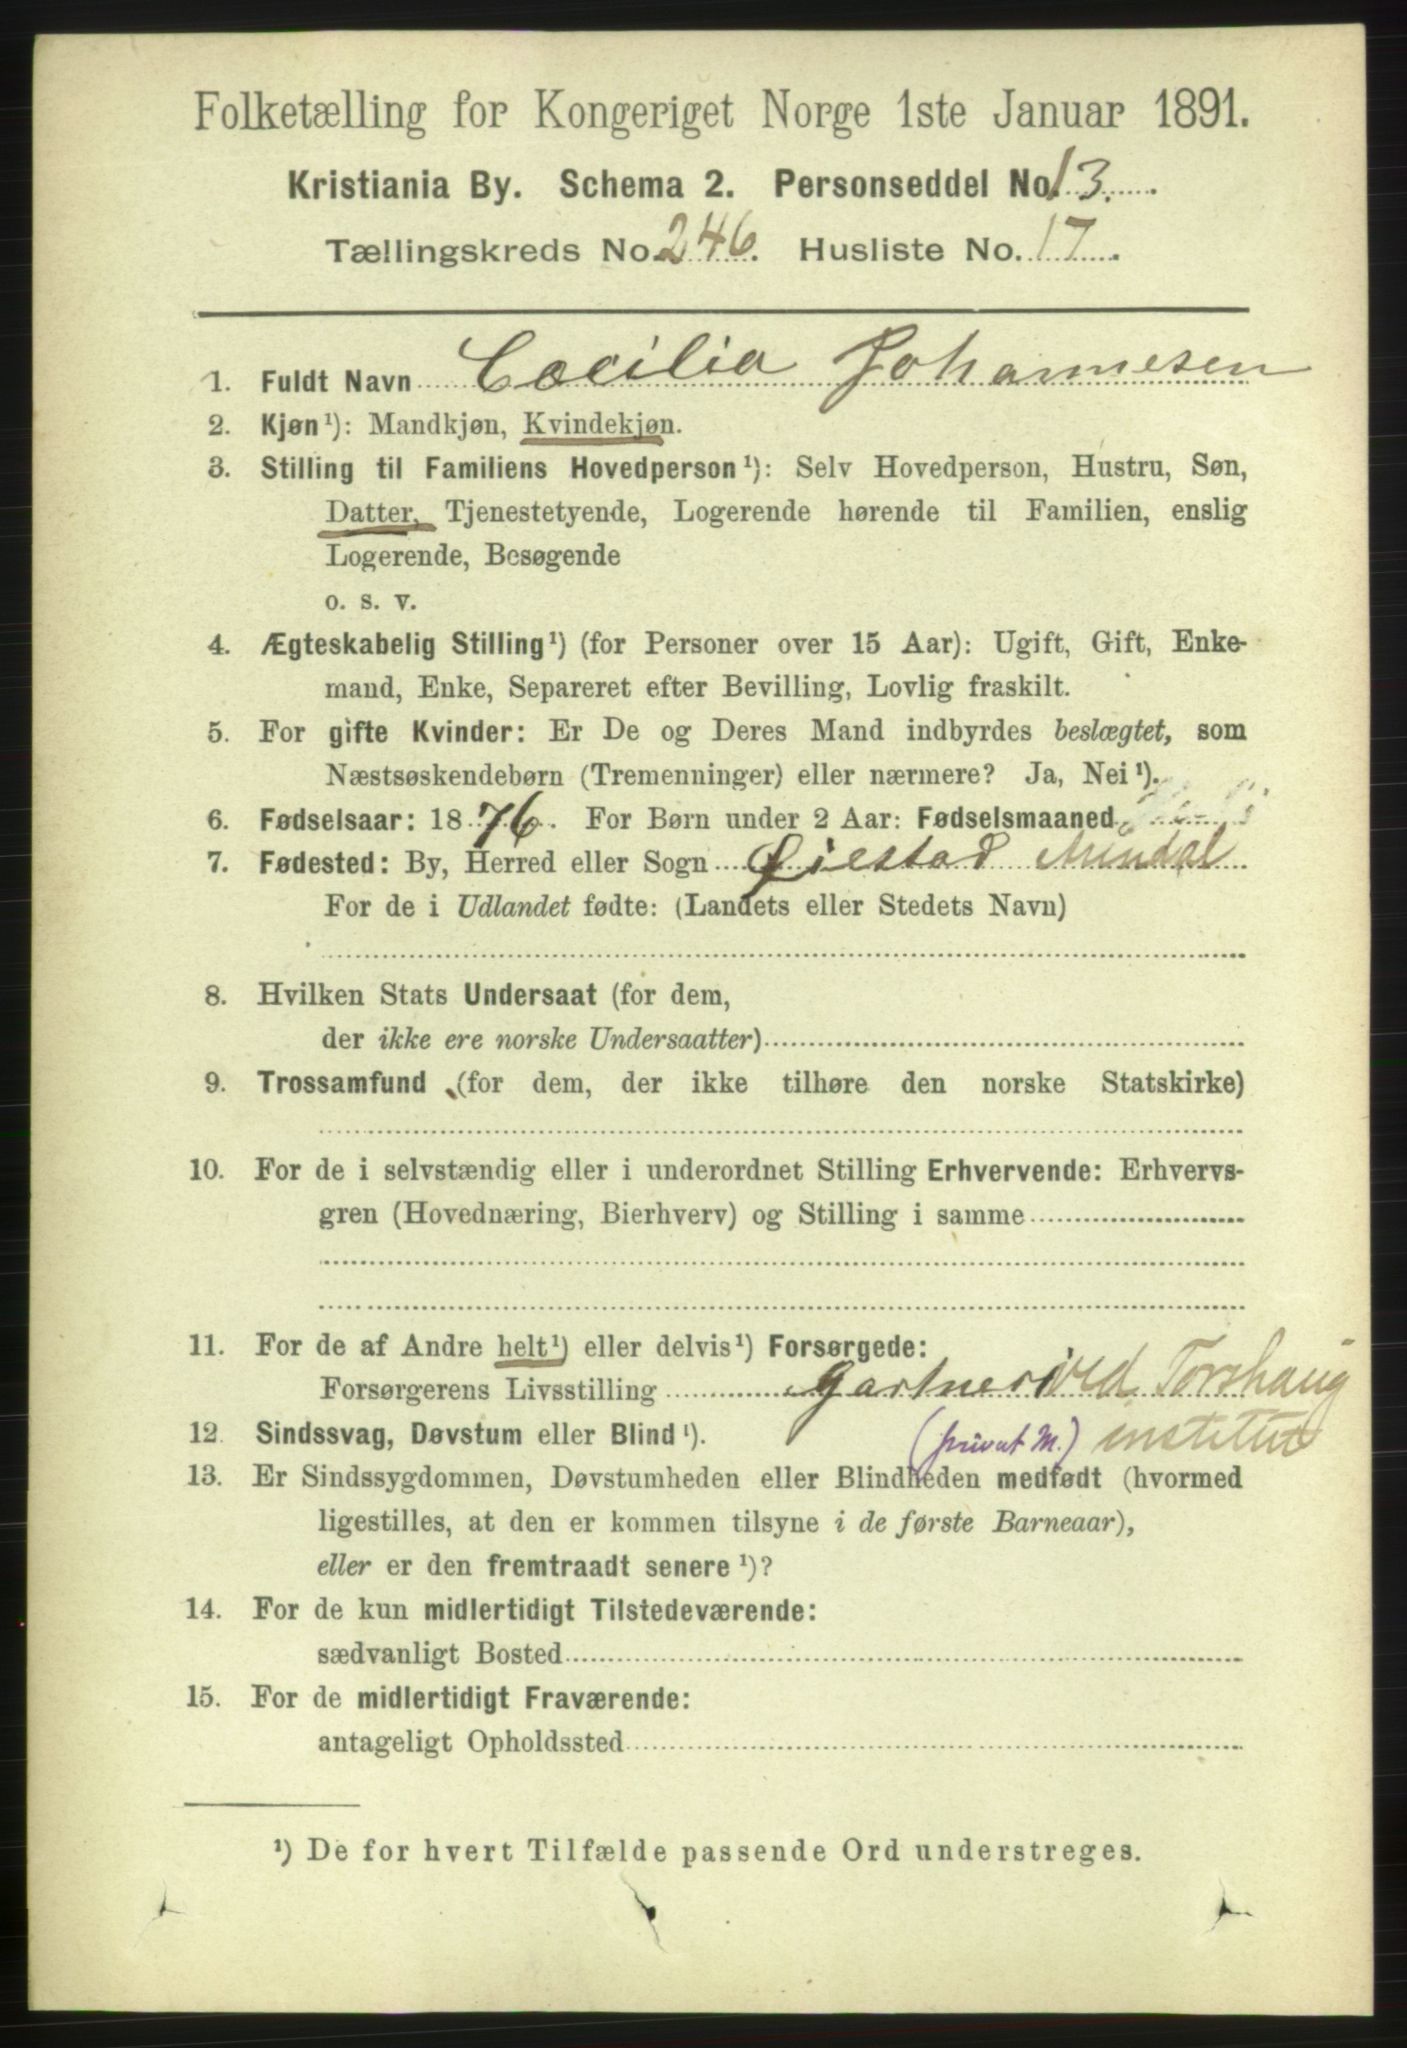 Folketælling for Kongeriget Norge 1ste Januar 1891.
Kristiania By. Schema 2. Personseddel No. 13.
Tællingskreds No. 246. Husliste No. 17.
1. Fuldt Navn Cecilia Johannesen
2. Kjøn¹): Mandkjøn, Kvindekjøn.
3. Stilling til Familiens Hovedperson¹): Selv Hovedperson, Hustru, Søn,
Datter, Tjenestetyende, Logerende hørende til Familien, enslig
Logerende, Besøgende
o. s. v.
4. Ægteskabelig Stilling¹) (for Personer over 15 Aar): Ugift, Gift, Enke-
mand, Enke, Separeret efter Bevilling, Lovlig fraskilt.
5. For gifte Kvinder: Er De og Deres Mand indbyrdes beslægtet, som
Næstsøskendebørn (Tremenninger) eller nærmere? Ja, Nei¹).
6. Fødselsaar: 1876. For Børn under 2 Aar: Fødselsmaaned
7. Fødested: By, Herred eller Sogn Øiestad Arendal
For de i Udlandet fødte: (Landets eller Stedets Navn)
8. Hvilken Stats Undersaat (for dem,
der ikke ere norske Undersaatter)
9. Trossamfund (for dem, der ikke tilhøre den norske Statskirke)
10. For de i selvstændig eller i underordnet Stilling Erhvervende: Erhvervs-
gren (Hovednæring, Bierhverv) og Stilling i samme
11. For de af Andre helt¹) eller delvis¹) Forsørgede:
Forsørgerens Livsstilling Gartner ved Torshaug
12. Sindssvag, Døvstum eller Blind¹). (privat M.) institut
13. Er Sindssygdommen, Døvstumheden eller Blindheden medfødt (hvormed
ligestilles, at den er kommen tilsyne i de første Barneaar),
eller er den fremtraadt senere¹)?
14. For de kun midlertidigt Tilstedeværende:
sædvanligt Bosted
15. For de midlertidigt Fraværende:
antageligt Opholdssted
¹) De for hvert Tilfælde passende Ord understreges.